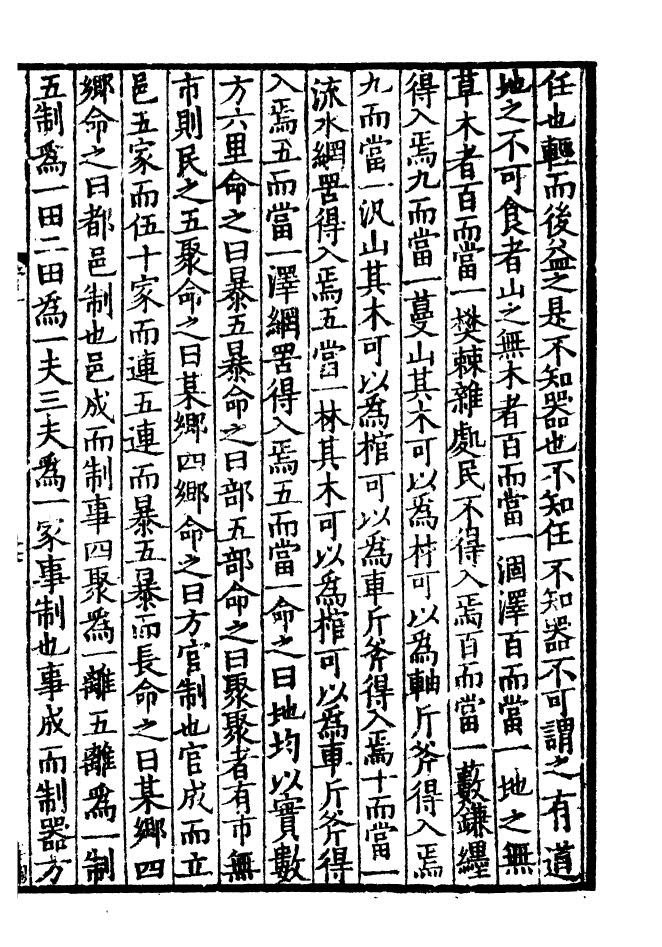 任也輕而後益之是不知器也不知任不知器不可謂之有道
地之不可食者山之無木者百而當一涸澤百而當一地之無
草木者百而當一樊棘雜處民不得入焉百而當一藪鎌纆
得入焉九而當一蔓山其木可以為材可以為軸斤斧得入焉
九而當一汎山其木可以為棺可以為車斤斧得入焉十而當一
流水網罟得入焉五當一林其木可以為棺可以為車斤斧得
入焉五而當一澤網罟得入焉五而當一命之曰地均以實數
方六里命之曰暴五暴命之曰部五部命之曰聚聚者有市無
市則民之五聚命之曰某鄉四鄉命之曰方官制也官成而立
邑五家而伍十家而連五連而暴五暴而長命之曰某鄉四
鄉命之曰都邑制也邑成而制事四聚為一離五離為一制
五制為一田二田為一夫三夫為一家事制也事成而制器方